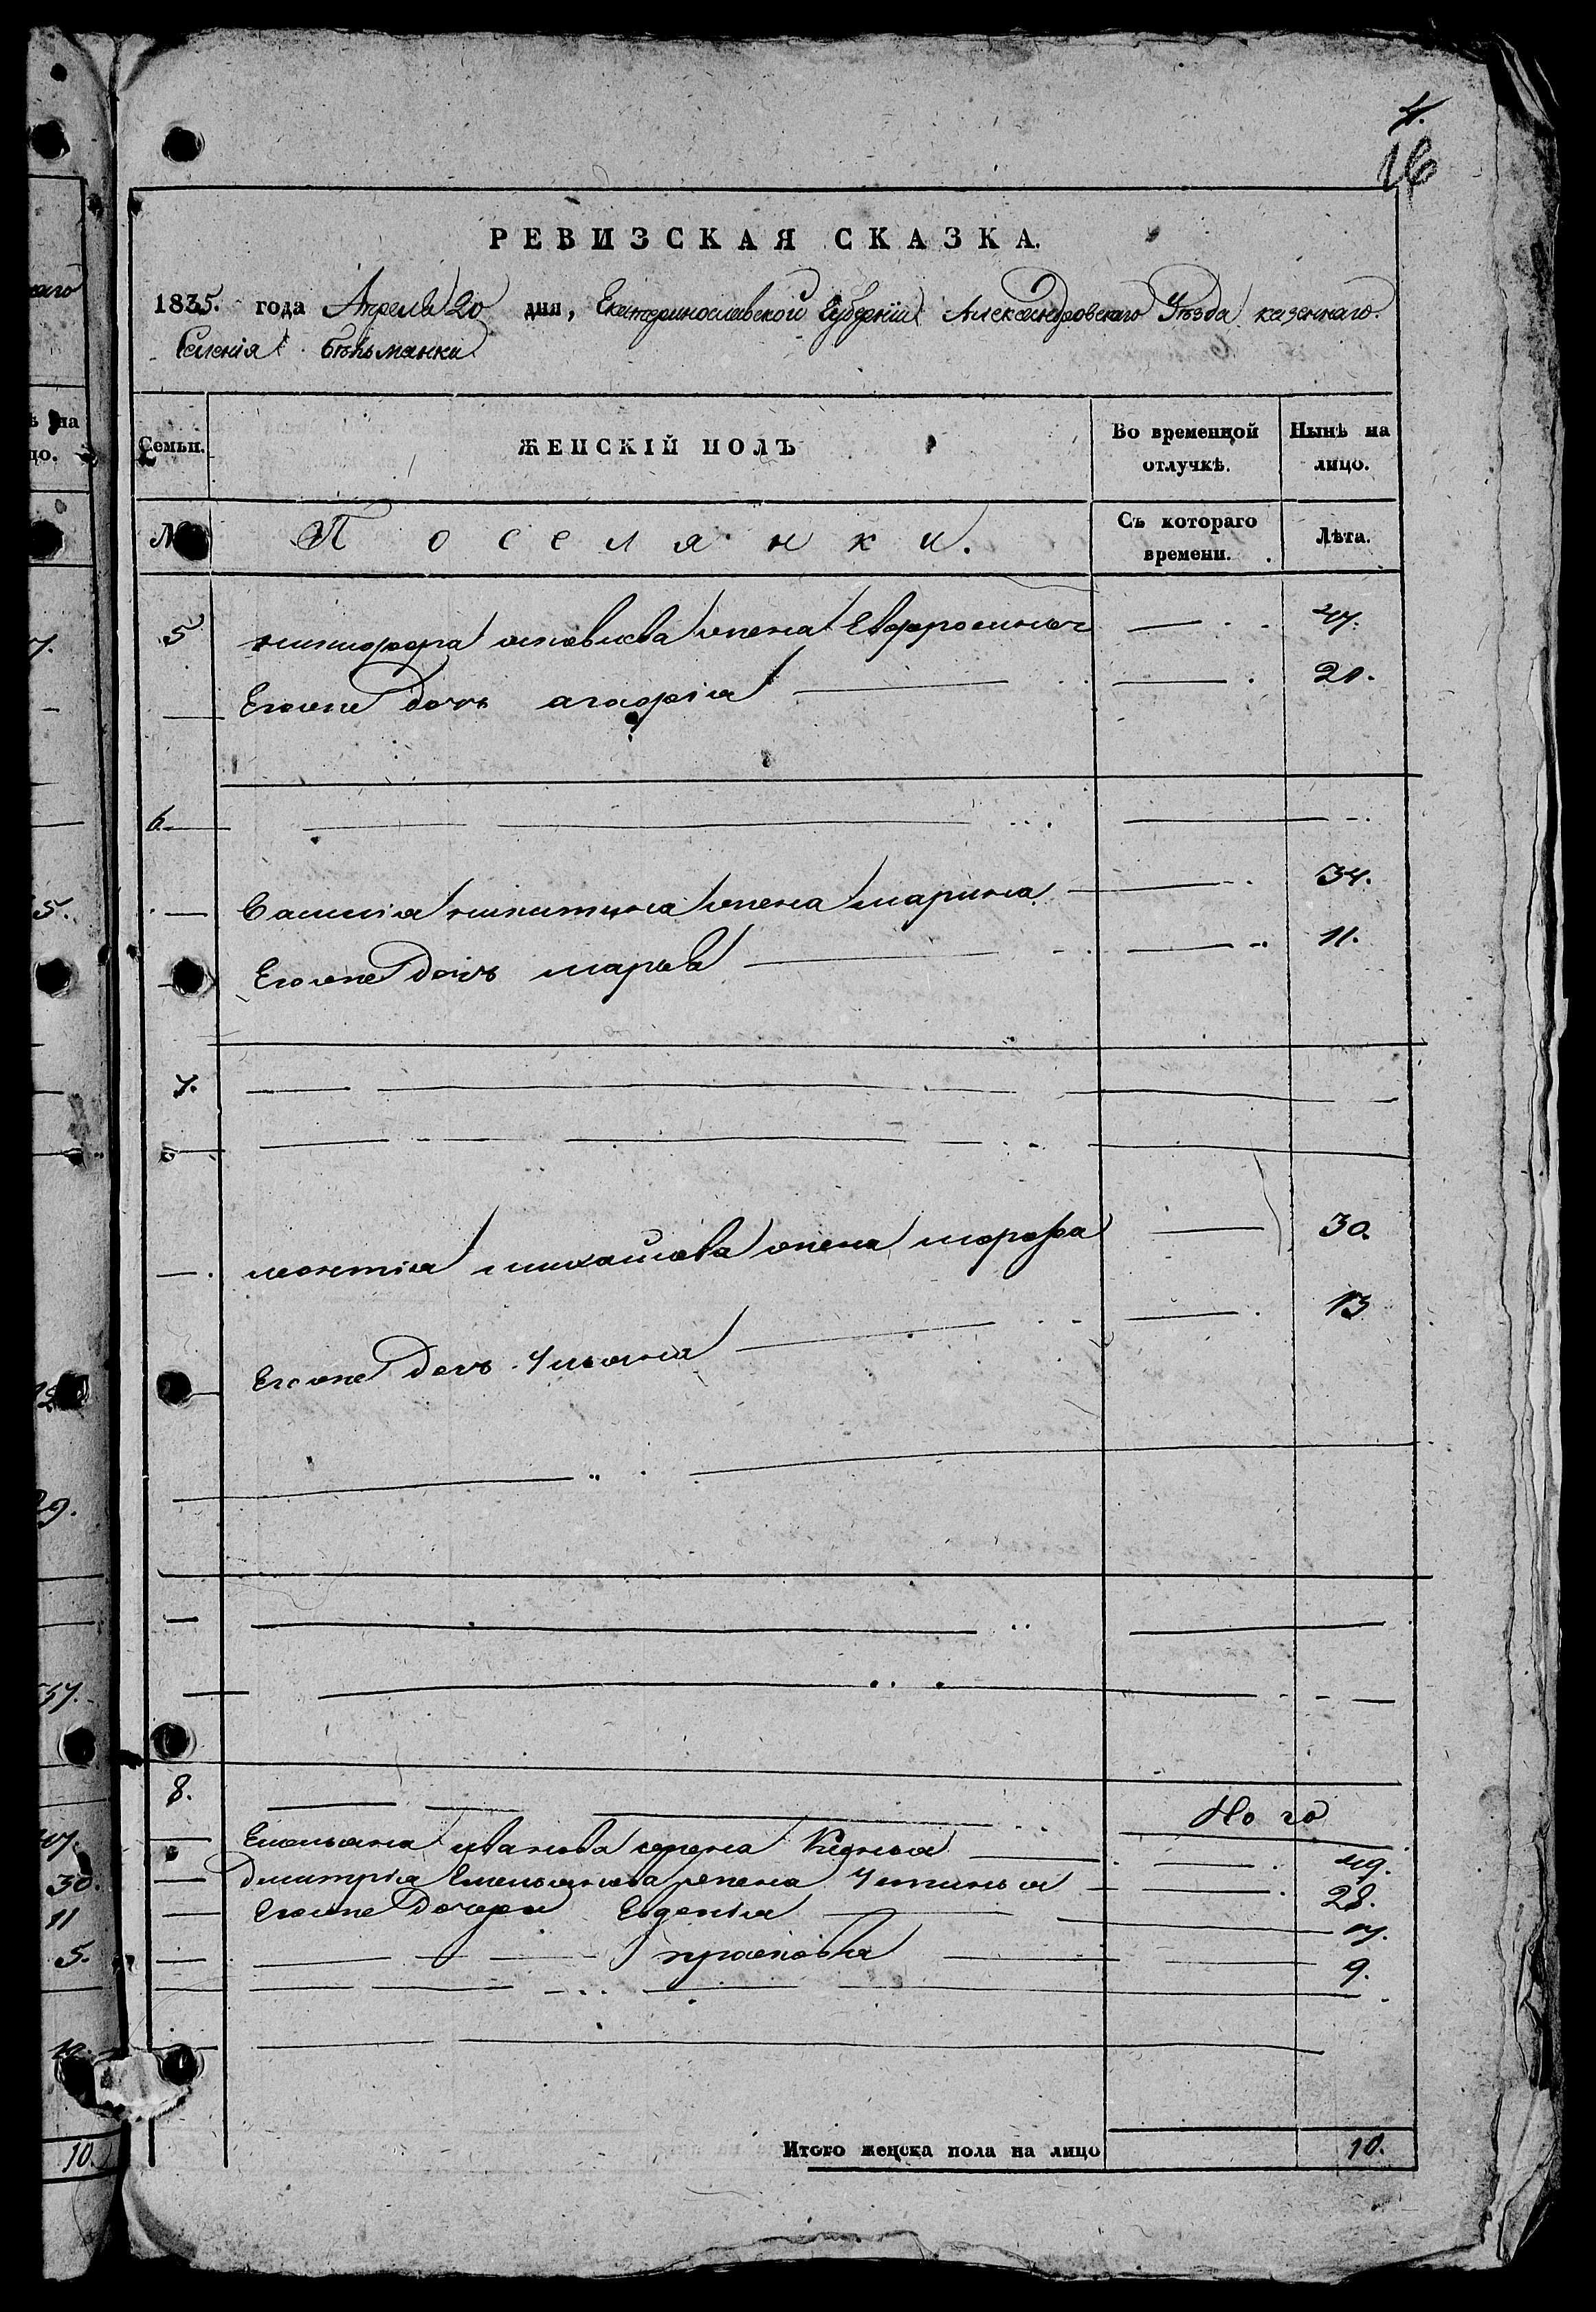 4.
16
РЕВИЗСКАЯ СКАЗКА.
1835. года Апреля 20 дня, Екатеринославской Губерніи Александровского Уѣзда казенного
Селенія Бѣльманки
Семьи. ЖЕНСКІЙ ПОЛЪ Во временной отлучкѣ. Нынѣ на лицо.
№ Поселянки. Съ котораго времени. Лѣта.
5 никифора жена Евфросинья 47.
Егоже дочь агафія 21.
6.
Василія никитина жена марина 34.
Егоже дочь марья 11.
7.
леонтія михайлова жена марфа 30.
Егоже дочь Ульяна 13
8.
Емельяна иванова жена 49.
Дмитрія Емельянова жена Устинья 28.
Егоже дочери Евдокія 17.
прасковья 9.
Итого женска пола на лицо 10.
ь на
цо.
5.
29.
37.
30.
11
5.
10.